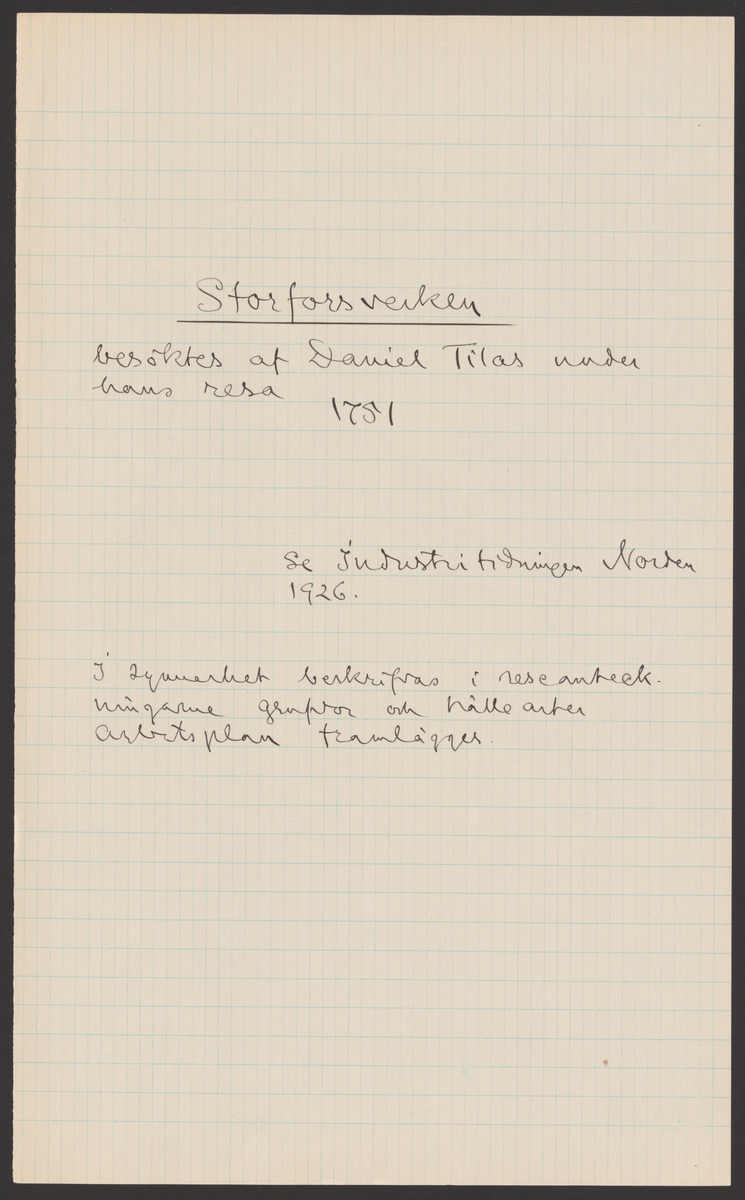 Storforsverken
besöktes af Daniel Tilas under
hans resa
1751
Se Industritidningen Norden
1926.
I synnerhet beskrifvas i reseanteck-
ningarne grufvor och hälle arter
Arbetsplan framlägges.